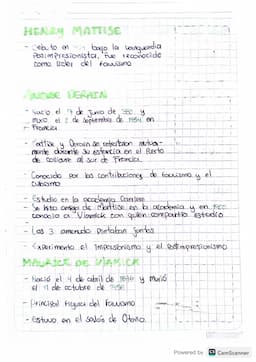 HENRY MATTISE
- Debuto en bajo la vanguardia
Postimpresionista, fue reconocido
como lider del fauvismo
ANDRE DERAIN
- Nacio el 17 de Junio de y
Murió el 2 de septiembre de 1954 en
Francia
- Mattise y Derain se retrataron mutua-
mente durante su estancia en el Puerto
de colliure al sur de Francia.
- Conocido por las contribuciones de fauvismo y el
cubismo
- Estudio en la academia Carriere
- Se hizo amigo de Mattisse en la academia y en
conocio a Vlamick con quien compartia estudio
- Los 3 amenudo pintaban juntos
- Experimento el Impresionismo y el Postimpresionismo
MAURICE DE VLAMICK
- Nació el 4 de abril de 1876 y Murió
el 11 de octubre de 1958
- Principal figura del fauvismo
- Estuvo en el salón de Otoño.
Powered by CS CamScanner